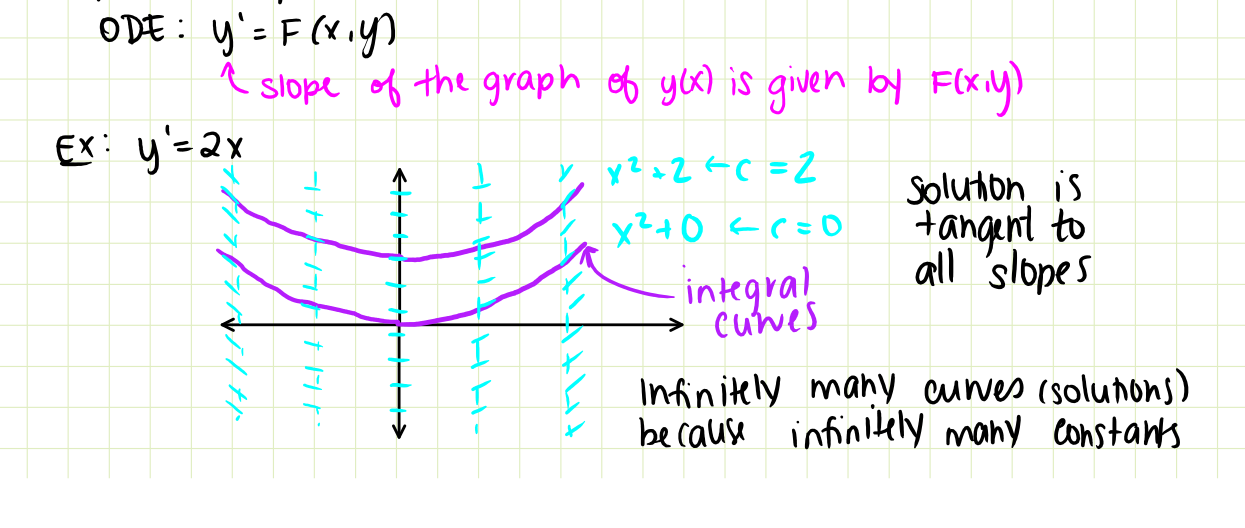 ODE: y' = F(x,y)
slope of the graph of y(x) is given by F(x,y)
Ex: y' = 2x
x²+2 ← c = 2
x²+0 ← c = 0
solution is
tangent to
all slopes
integral
curves
Infinitely many curves (solutions)
because infinitely many constants